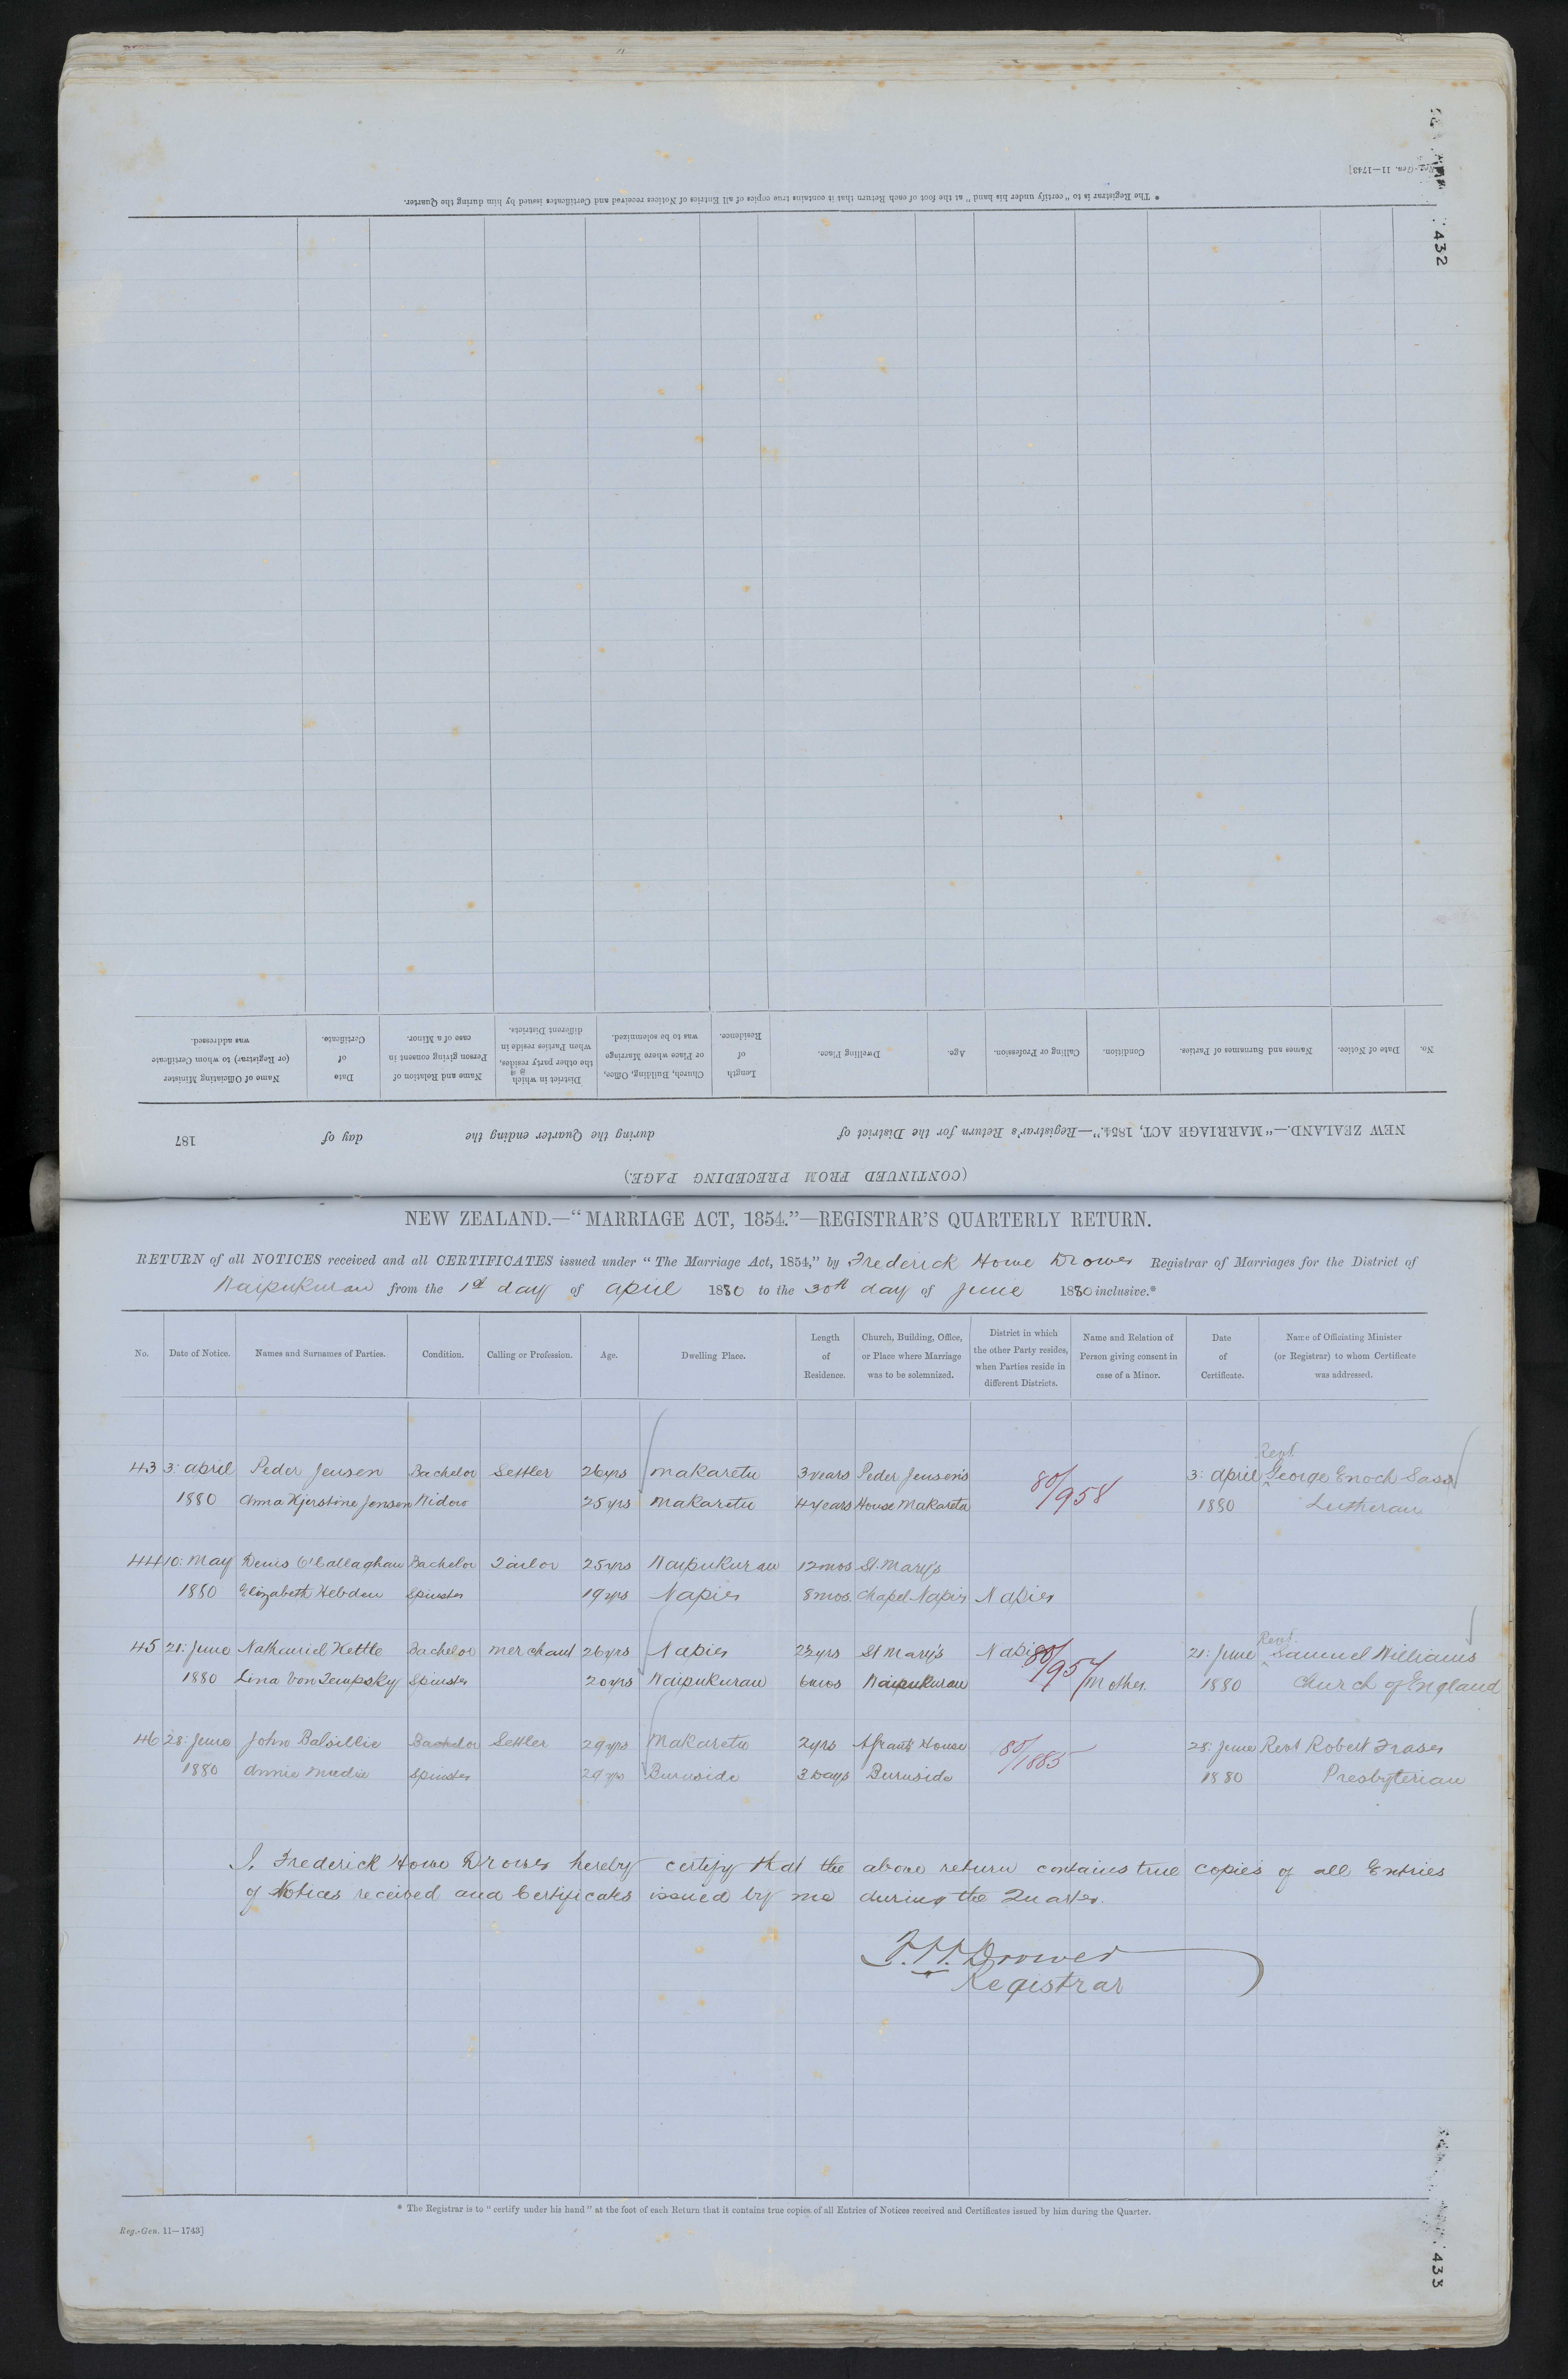 432
Reg.-Gen. 11—1743]
* The Registrar is to "certify under his hand" at the foot of each Return that it contains true copies of all Entries of Notices received and Certificates issued by him during the Quarter.
(CONTINUED FROM PRECEDING PAGE.)
NEW ZEALAND.—"MARRIAGE ACT, 1854."—Registrar's Return for the District of during the Quarter ending the day of 187
No. Date of Notice. Names and Surnames of Parties. Condition. Calling or Profession. Age. Dwelling Place. Length of Residence. Church, Building, Office, or Place where Marriage was to be solemnized. District in which the other party resides, when Parties reside in different Districts. Name and Relation of Person giving consent in case of a Minor. Date of Certificate. Name of Officiating Minister (or Registrar) to whom Certificate was addressed.
NEW ZEALAND.—"MARRIAGE ACT, 1854."—REGISTRAR'S QUARTERLY RETURN.
RETURN of all NOTICES received and all CERTIFICATES issued under "The Marriage Act, 1854," by Frederick Howe Drower Registrar of Marriages for the District of
Waipukurau from the 1st day of April 1880 to the 30th day of June 1880 inclusive.*
No. Date of Notice. Names and Surnames of Parties. Condition. Calling or Profession. Age. Dwelling Place. Length of Residence. Church, Building, Office, or Place where Marriage was to be solemnized. District in which the other Party resides, when Parties reside in different Districts. Name and Relation of Person giving consent in case of a Minor. Date of Certificate. Name of Officiating Minister (or Registrar) to whom Certificate was addressed.
Revd.
43 3: April Peder Jensen Bachelor Settler 26yrs Makaretu 3 years Peder Jensen's 80/958 3: April George Enoch Sass
1880 Anna Kjerstine Jonson Widow 25yrs Makaretu 4 years House Makaretu 1880 Lutheran
44 10: May Denis O'Callaghan Bachelor Tailor 25yrs Waipukurau 12mos St. Mary's
1880 Elizabeth Hebden Spinster 19yrs Napier 8mos. Chapel Napier Napier
Revd.
45 21: June Nathaniel Kettle Bachelor Merchant 26yrs Napier 23yrs St Mary's Napier 80/957 21: June Samuel Williams
1880 Lina Von Tempsky Spinster 20yrs Waipukurau 6mos Waipukurau Mother. 1880 Church of England
46 28: June John Balsillie Bachelor Settler 29yrs Makaretu 2yrs House 80/1885 28: June Revd Robert Fraser
1880 Annie Mudie Spinster 29yrs Burnside 3 Days Burnside 1880 Presbyterian
I, Frederick Howe Drower hereby certify that the above return contains true copies of all Entries
of Notices received and Certificates issued by me during the Quarter.
F. H. Drower
Registrar
* The Registrar is to "certify under his hand" at the foot of each Return that it contains true copies of all Entries of Notices received and Certificates issued by him during the Quarter.
Reg.-Gen. 11—1743]
433